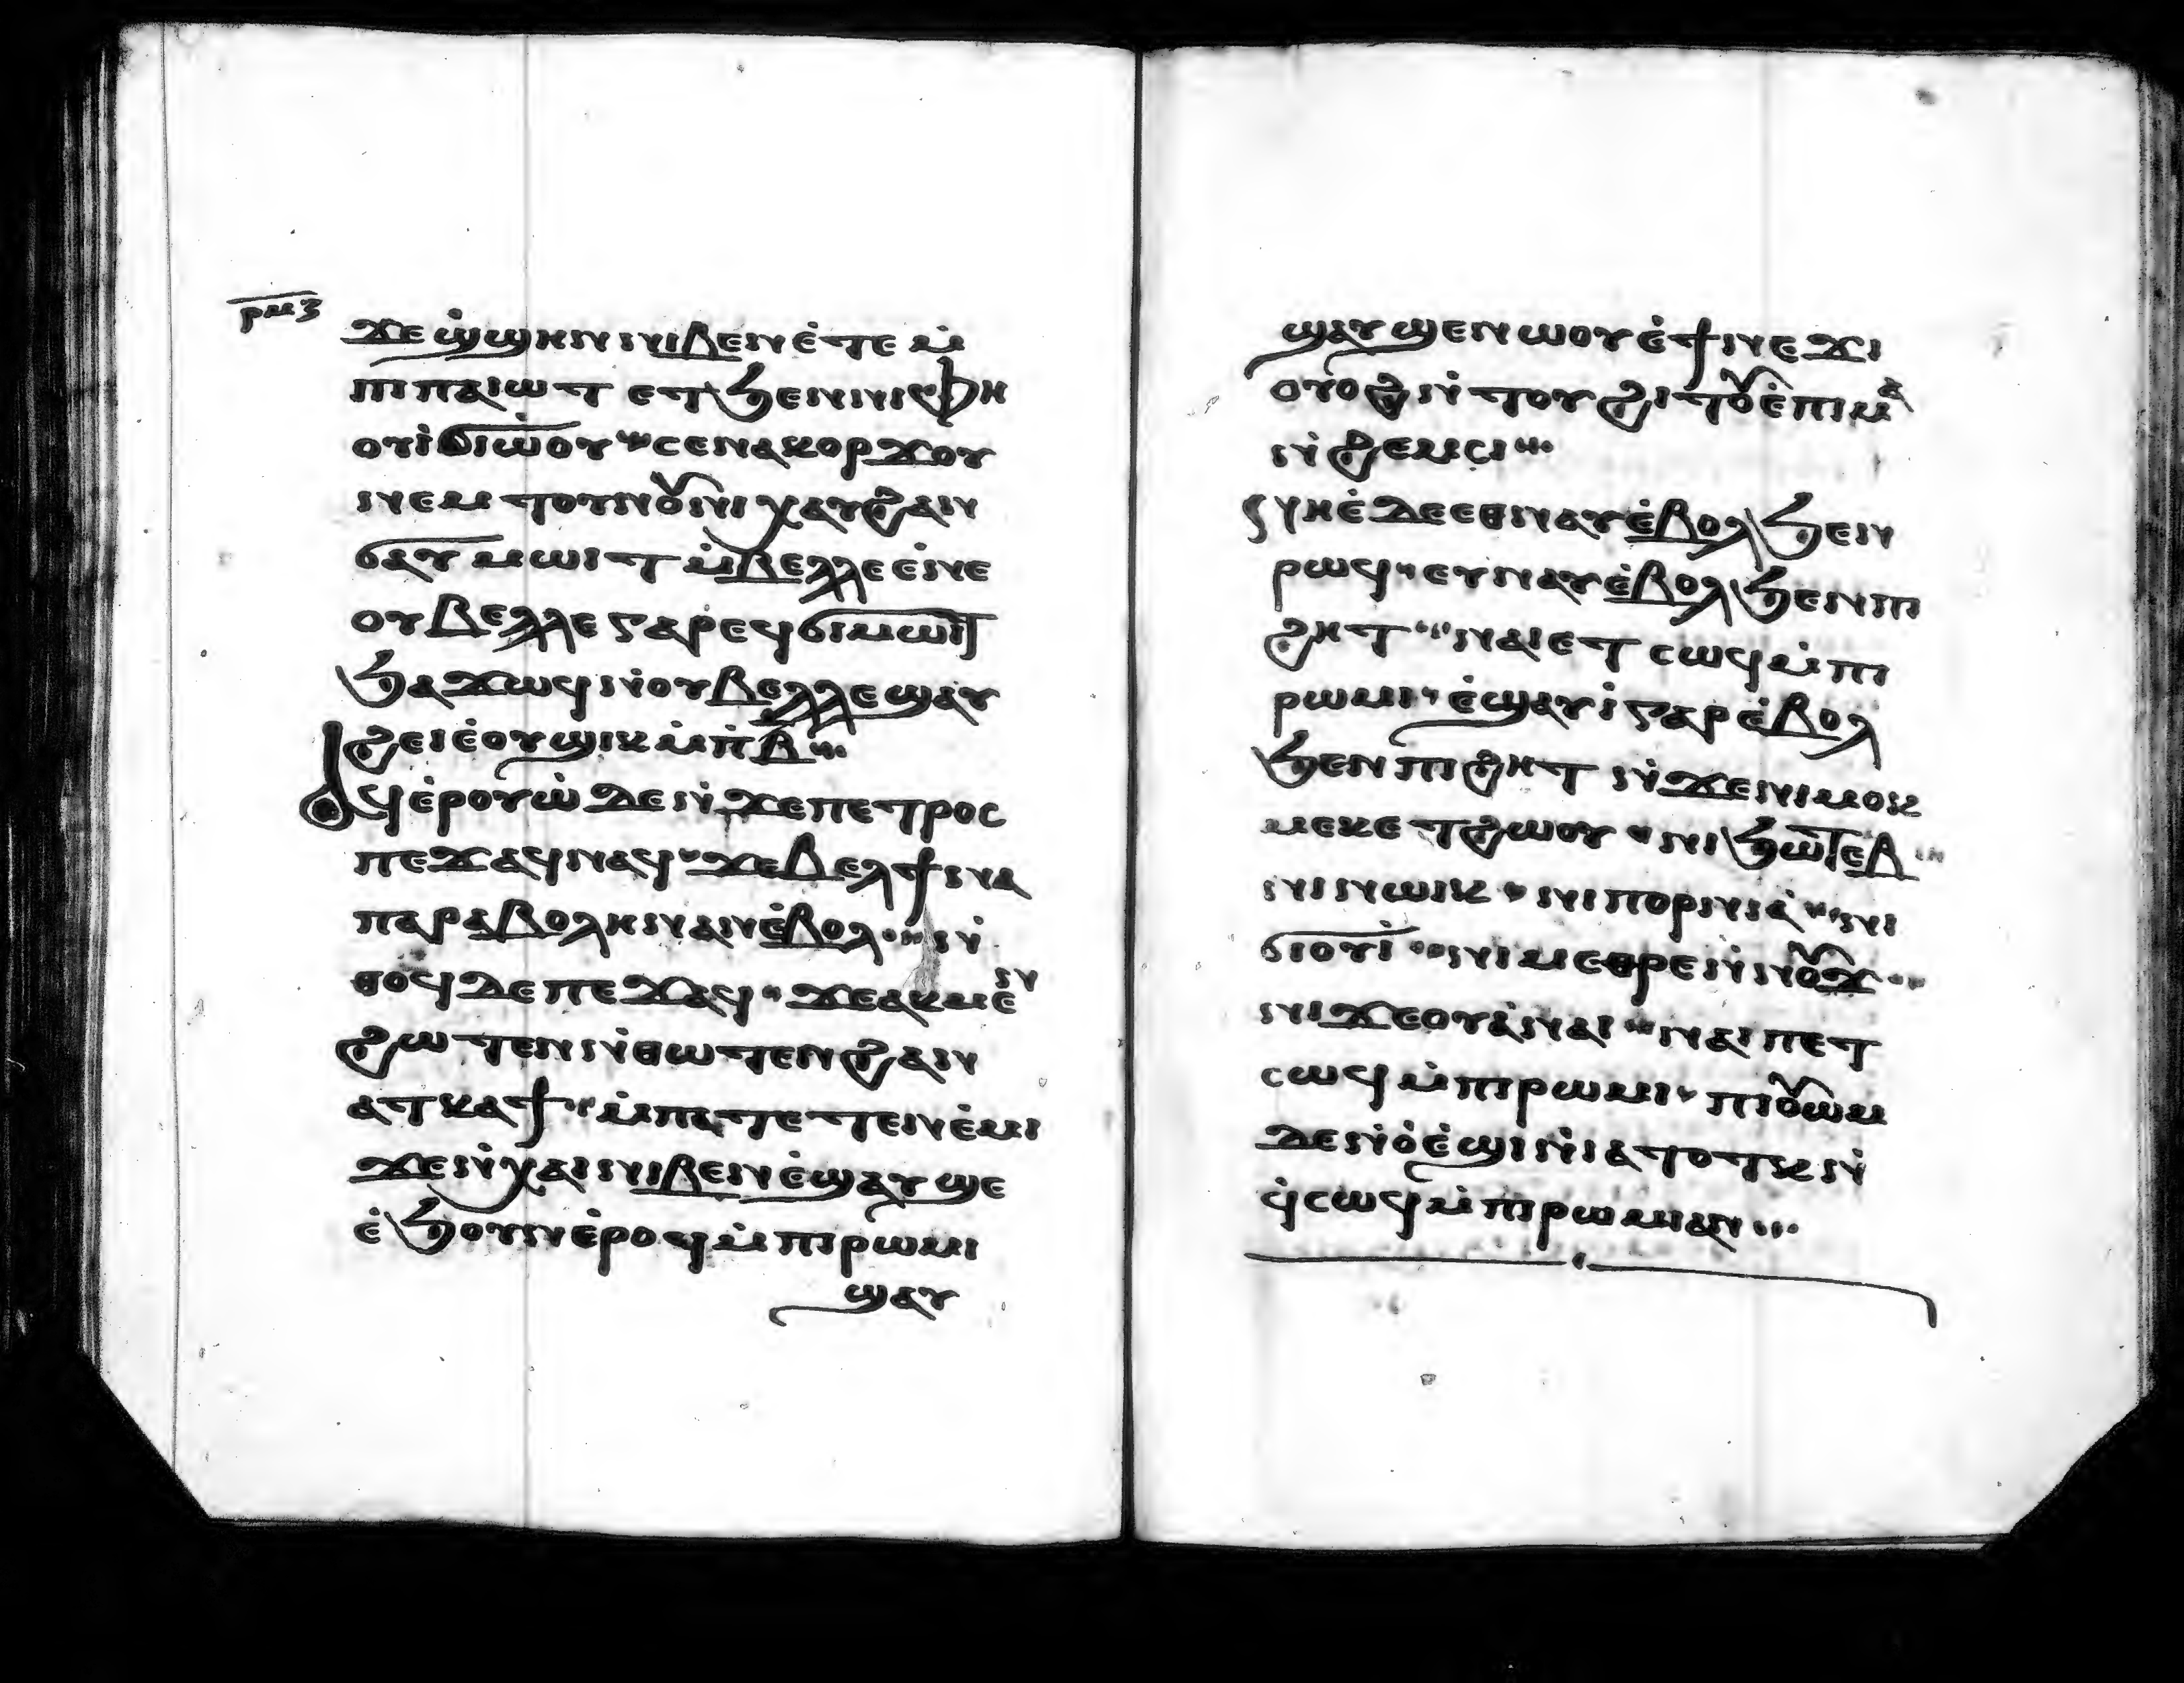 ⲣⲙⲍ
ϫⲉ ϣ̇ϣⲏⲛ ⲛⲓⲃⲉⲛ ⲉ̇ⲧⲉ ⲙ̇
ⲡⲓⲡⲁⲓⲱⲧ ⲉⲧϧⲉⲛⲛⲓⲫⲏ
ⲟⲩⲓ̇ϭⲓⲱ̇ⲟⲩ ⲥⲉⲛⲁⲕⲟⲣϫⲟⲩ
ⲛⲉⲙ ⲧⲟⲩⲛⲟⲩⲛⲓ ⲭⲁⲩϩⲁⲛ
ϭⲁⲩⲙⲱⲓⲧ ⲙ̇ⲃⲉⲗⲗⲉ ⲉ̇ⲛⲉ
ⲟⲩⲃⲉⲗⲗⲉ ⲅⲁⲣ ⲉϥϭⲓⲙⲱⲓⲧ
ϧⲁϫⲱϥ ⲛ̇ⲟⲩⲃⲉⲗⲗⲉ ϣⲁⲩ
ϩⲉⲓ ⲉ̇ⲟⲩϣⲓⲕ ⲙ̇ⲡⲃ̅
ⲁϥⲉ̇ⲣⲟⲩⲱ̇ ⲇⲉ ⲛ̇ϫⲉ ⲡⲉⲧⲣⲟⲥ
ⲡⲉϫⲁϥ ⲛⲁϥ ϫⲉ ⲃⲉⲗϯⲛⲁ
ⲡⲁⲣⲁⲃⲟⲗⲏ ⲛⲁⲛ ⲉ̇ⲃⲟⲗ ⲛ̇
ⲑⲟϥ ⲇⲉ ⲡⲉϫⲁϥ ϫⲉ ⲁⲕⲙⲉⲛ
ϩⲱⲧⲉⲛ ⲛ̇ⲑⲱⲧⲉⲛ ϩⲁⲛ
ⲁⲧⲕⲁϯ ⲙ̇ⲡⲁⲧⲉⲧⲉⲛⲉ̇ⲙⲓ
ϫⲉ ⲛ̇ⲭⲁⲓ ⲛⲓⲃⲉⲛ ⲉ̇ϣⲁⲩϣⲉ
ⲉ̇ϧⲟⲩⲛ ⲉ̇ⲣⲟϥ ⲙ̇ⲡⲓⲣⲱⲙⲓ
ϣⲁⲩ
ϣⲁⲩϣⲉⲛⲱⲟⲩ ⲉ̇ϯⲛⲉϫⲓ
ⲟⲩⲟϩ ⲛ̇ⲧⲟⲩϩⲓⲧⲟⲩ ⲉ̇ⲡⲓⲙⲁ
ⲛ̇ϩⲉⲙⲥⲓ
ⲛⲏⲉ̇ ⲇⲉ ⲉⲑⲛⲁⲩ ⲉ̇ⲃⲟⲗ ϧⲉⲛ
ⲣⲱϥ ⲉⲩⲛⲁⲩ ⲉ̇ⲃⲟⲗ ϧⲉⲛ ⲡⲓ
ϩⲏⲧ ⲛⲁⲓ ⲉⲧⲥⲱϥ ⲙ̇ⲡⲓ
ⲣⲱⲙⲓ ⲉ̇ϣⲁⲩⲓ̇ ⲅⲁⲣ ⲉ̇ⲃⲟⲗ
ϧⲉⲛ ⲡⲓϩⲏⲧ ⲛ̇ϫⲉ ⲛⲓⲙⲟⲕ
ⲙⲉⲕ ⲉⲧϩⲱⲟⲩ ⲛⲓϧⲱⲧⲉⲃ
ⲛⲓⲛⲱⲓⲕ ⲛⲓⲡⲟⲣⲛⲓⲁ̇ ⲛⲓ
ϭⲓⲟⲩⲓ̇ ⲛⲓⲙⲉⲑⲣⲉ ⲛ̇ⲛⲟⲩϫ
ⲛⲓϫⲉⲟⲩⲁ̇ ⲛⲁⲓ ⲛⲁⲓ ⲡⲉⲧ
ⲥⲱϥ ⲙ̇ⲡⲓⲣⲱⲙⲓ ⲡⲓⲟⲩⲱⲙ
ⲇⲉ ⲛ̇ⲟ̇ⲉ̇ϣⲓⲛ̇ⲓⲁⲧⲟⲧⲕ ⲛ̇
ϥ̇ⲥⲱϥ ⲙ̇ⲡⲓⲣⲱⲙⲓ ⲁⲛ